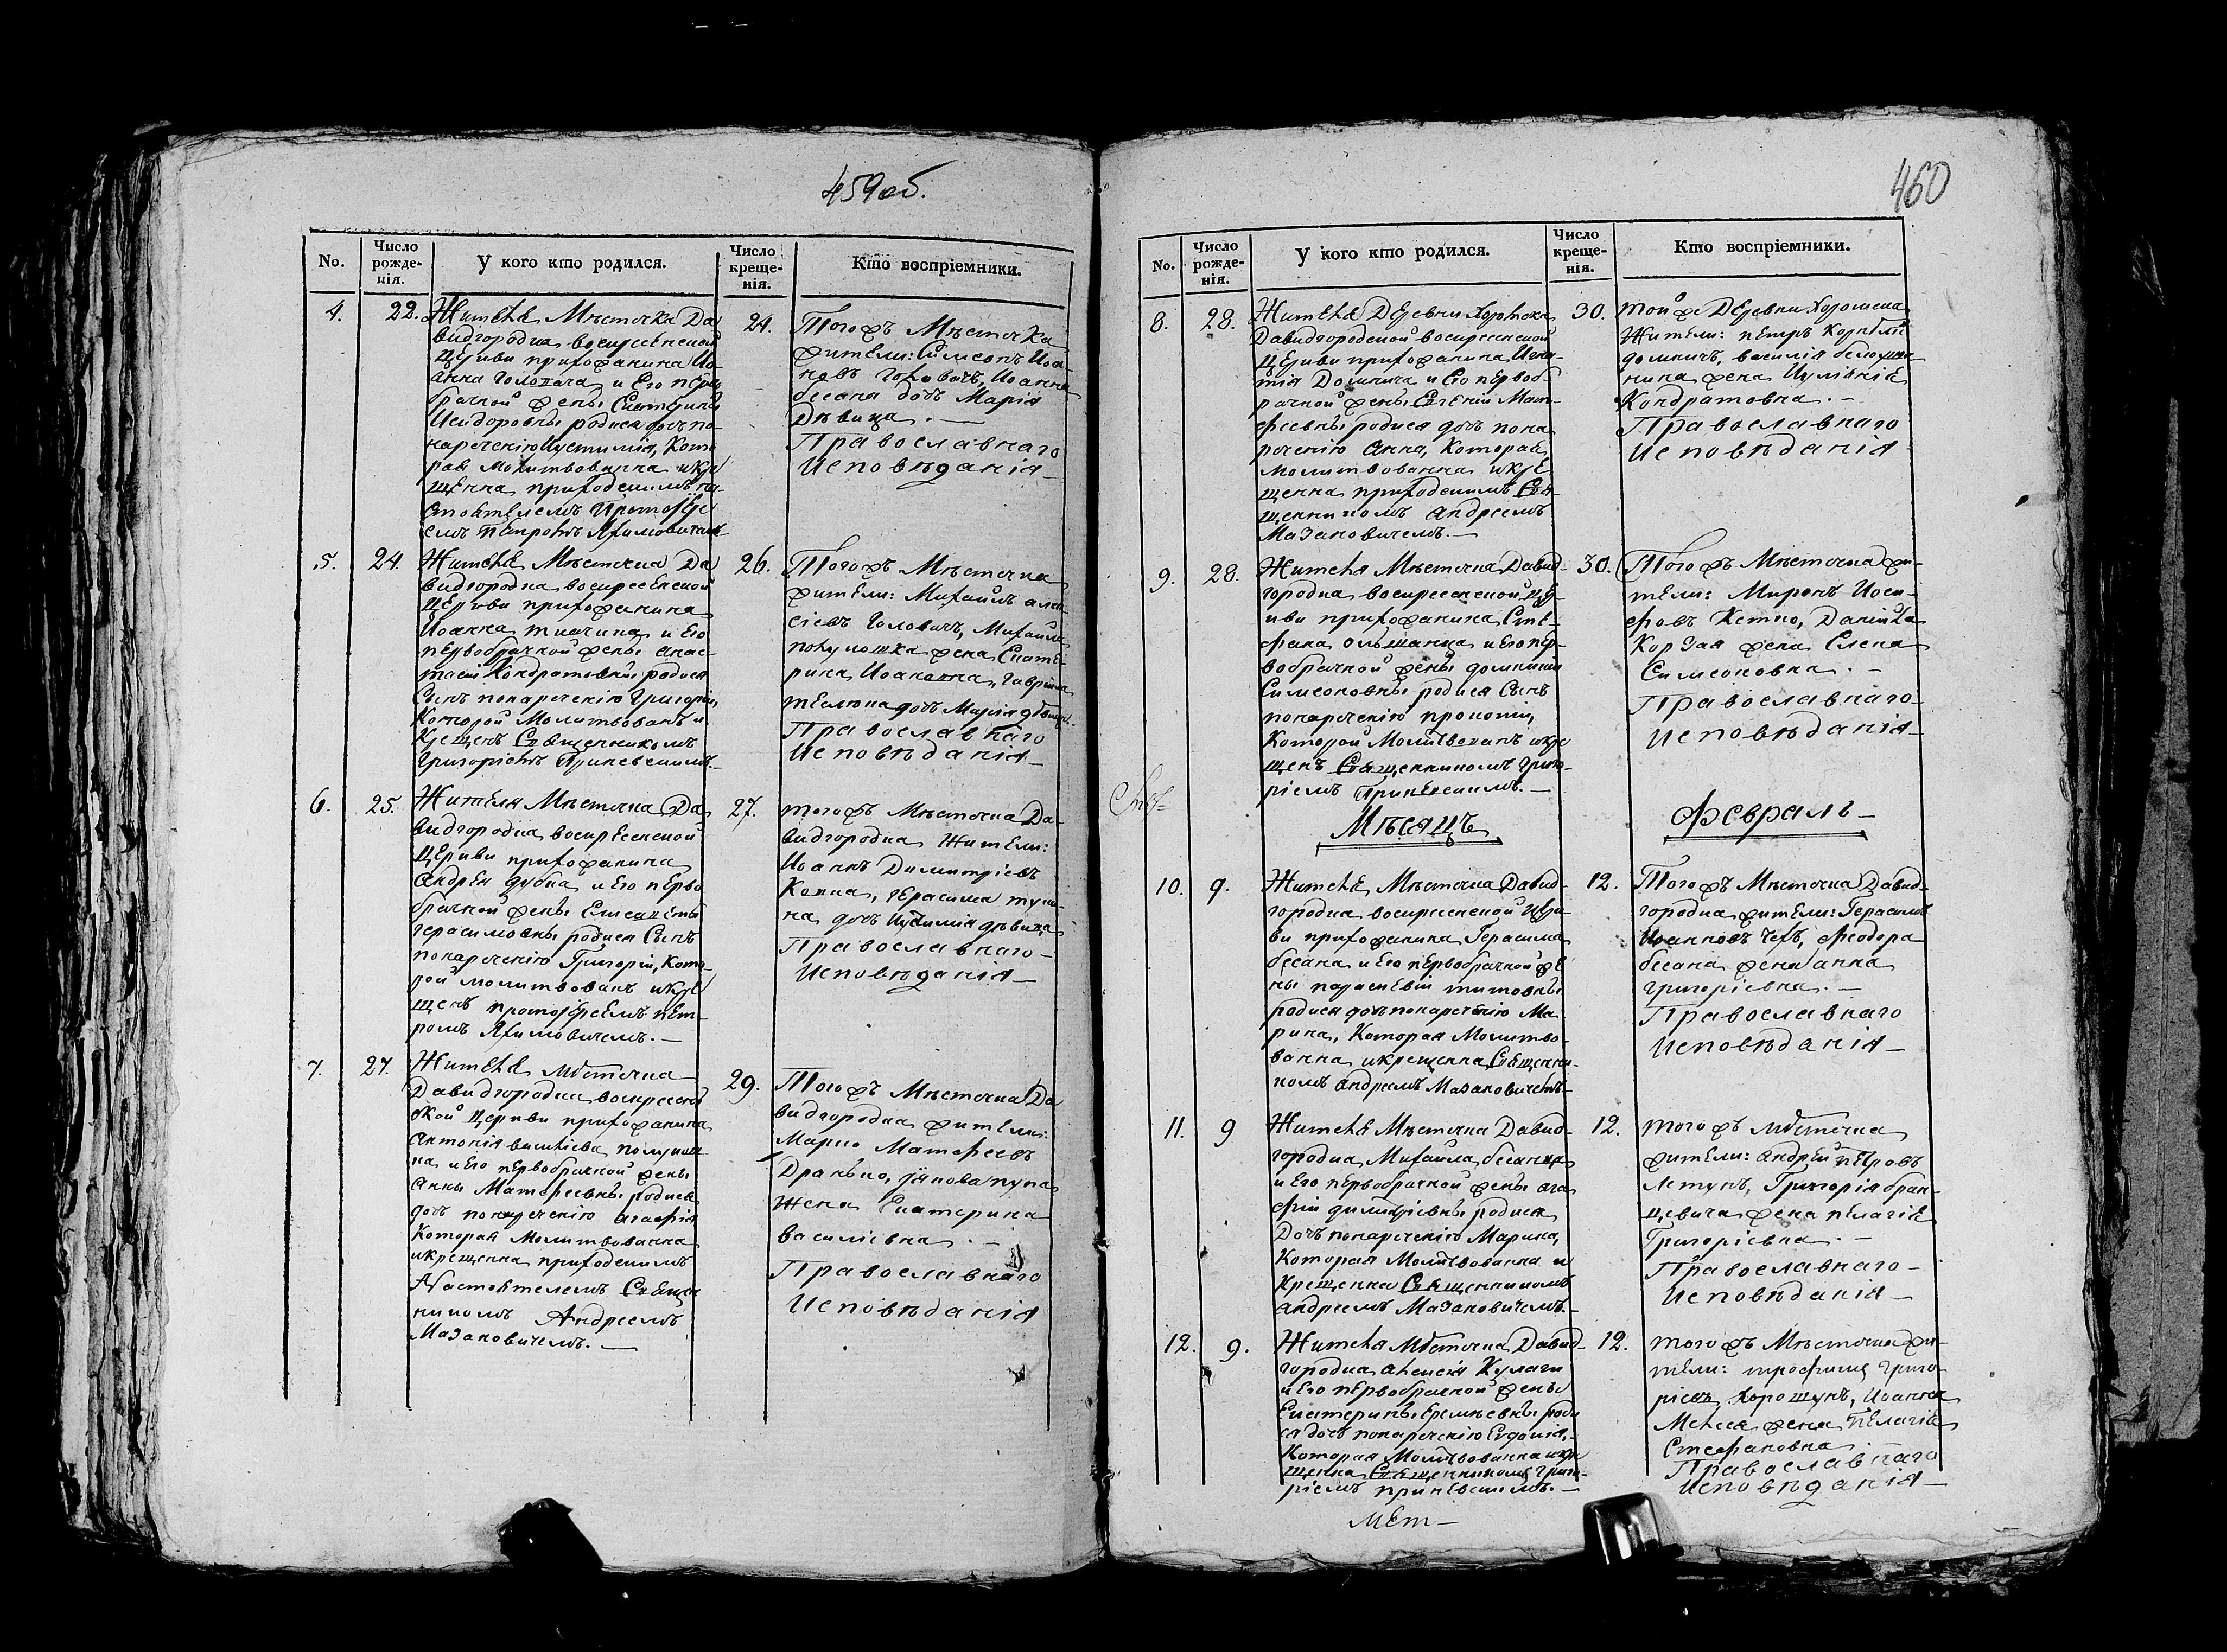 459об.
No.
Число рожде-нія.
У кого кто родился.
Число креще-нія.
Кто воспріемники.
4.
22.
Жителѣ Мѣсточка Да
видгородка воскресенской
Церкви прихожанина Іо-
анна Головача и Его перво
брачной жены Екатерины
Исидоровны родися дочь по
нареченію Іустинія, Кото
рая Молитвованна и кре
щенна приходскимъ на-
стоятелемъ Протоіере
емъ Петромъ Якимовичемъ
24.
Того жъ Мѣсточка
жители: Симеонъ Иоа-
новъ Головачъ, Иоанна
бесана дочь Марія
Дѣвица. —
Православнаго
Исповѣданія
5.
24.
Жителѣ Мѣсточка Да
видгородка воскресенской
Церкви прихожанина
Иоанна и Его
первобрачной жены Анас-
тасіи Кондратовны родися
Сынъ понареченію Григорій,
Которой Молитвованъ и
Крещенъ Священникомъ
Григоріемъ
26.
Того жъ Мѣсточка
жители: Михаилъ Алек
сіевъ Головачъ, Михаила
жена Екате-
рина Иоановна, Гавріила
дочь Марія дѣвица
Православнаго
Исповѣданія
6.
25.
Жителя Мѣсточка Да
видгородка воскресенской
Церкви прихожанина
Андрея дубка и Его перво
брачной жены Елисаветы
Герасимовны родися Сынъ
понареченію Григорій, Кото-
рой молитвованъ и кре
щенъ протоіреемъ Пет-
ромъ Якимовичемъ. —
27.
того жъ Мѣсточка Да-
видгородка Жители:
Иоаннъ Димитріевъ
Герасима
дочь дѣвица
Православнаго
Исповѣданія
7.
27.
Жителѣ мѣсточка
Давидгородка воскресен
ской Церкви прихожанина
Антонія василіева полукош
ка и Его первобрачной жены
Анны Матфеевны родися
дочь понареченію Агафія
Которая Молитвованна
и крещенна приходскимъ
Настоятелемъ Священ
никомъ Андреемъ
Мазановичемъ. —
29.
Того жъ Мѣсточка Да
видгородка жители:
Марко Матфеевъ
Дранько,
жена Екатерина
Василіевна. —
Православнаго
Исповѣданія
460
No.
Число рожде-нія.
У кого кто родился.
Число креще-нія.
Кто воспріемники.
8.
28.
Жителѣ Деревни Хоромска
Давидгородской воскресенской
Церкви прихожанина Игна-
тія Домнича и Его первоб-
рачной жены Евгеніи Мат-
феевны родися дочь пона
реченію Анна, Которая
молитвованна и кре
щенна приходскимъ Свя-
щенникомъ Андреемъ
Мазановичемъ. —
30.
той же Деревни Хоромска
Жители: петръ Корнѣлі
домничъ, василія
жена Иуліянія
Кондратовна. —
Православнаго
Исповѣданія
9.
28.
Жителя Мѣсточка Давид-
городка воскресенской Цер-
кви прихожанина Сте-
фана Ольшанца и Его пер-
вобрачной жены домникіи
Симеоновны родися Сынъ
понареченію прокопій,
Которой Молитвованъ и кре
щенъ Священникомъ Григо-
ріемъ
30.
Того жъ Мѣсточка жи-
тели: Миронъ Иоси-
фовъ Кетно, Даніила
Корзая жена Елена
Симеоновна. —
Православнаго
Исповѣданія
Мѣсяцъ
Февраль
10.
9.
Жителѣ Мѣсточка Давид-
городка воскресенской Церк-
ви прихожанина Герасима
бесана и Его первобрачной же
ны параскевіи титовны
родися дочь понареченію Ма-
рина, Которая Молитво-
ванна и крещенна Священни-
комъ Андреемъ Мазановичемъ
12.
Того жъ Мѣсточка Давид-
городка жители: Герасимъ
Иоанновъ Чехъ, Феодора
бесана жена Анна
Григоріевна. —
Православнаго
Исповѣданія
11.
9
Жителѣ Мѣсточка Давид-
городка Михаила бесанца
и Его первобрачной жены Ага
фіи димитріевны родися
Дочь понареченію Марина,
Которая Молитвованна и
Крещенна Священникомъ
Андреемъ Мазановичемъ. —
12.
того жъ мѣсточка
жители: Андрей Петровъ
Летунъ, Григорія бран-
цевича жена Пелагія
Григоріевна. —
Православнаго
Исповѣданія
12.
9.
Жителя Мѣсточка Давид-
городка Алексія Кулаги
и Его первобрачной жены
Екатерины Еремѣевны роди
ся дочь понареченію Евдокія,
Которая Молитвованна и кре
щенна Священникомъ Григо-
ріемъ
12.
того жъ Мѣсточка жи-
тели: трофимъ Григо
ріевъ Хорошунъ, Иоанна
жена Пелагія
Стефановна.
Православнаго
Исповѣданія
Мет-